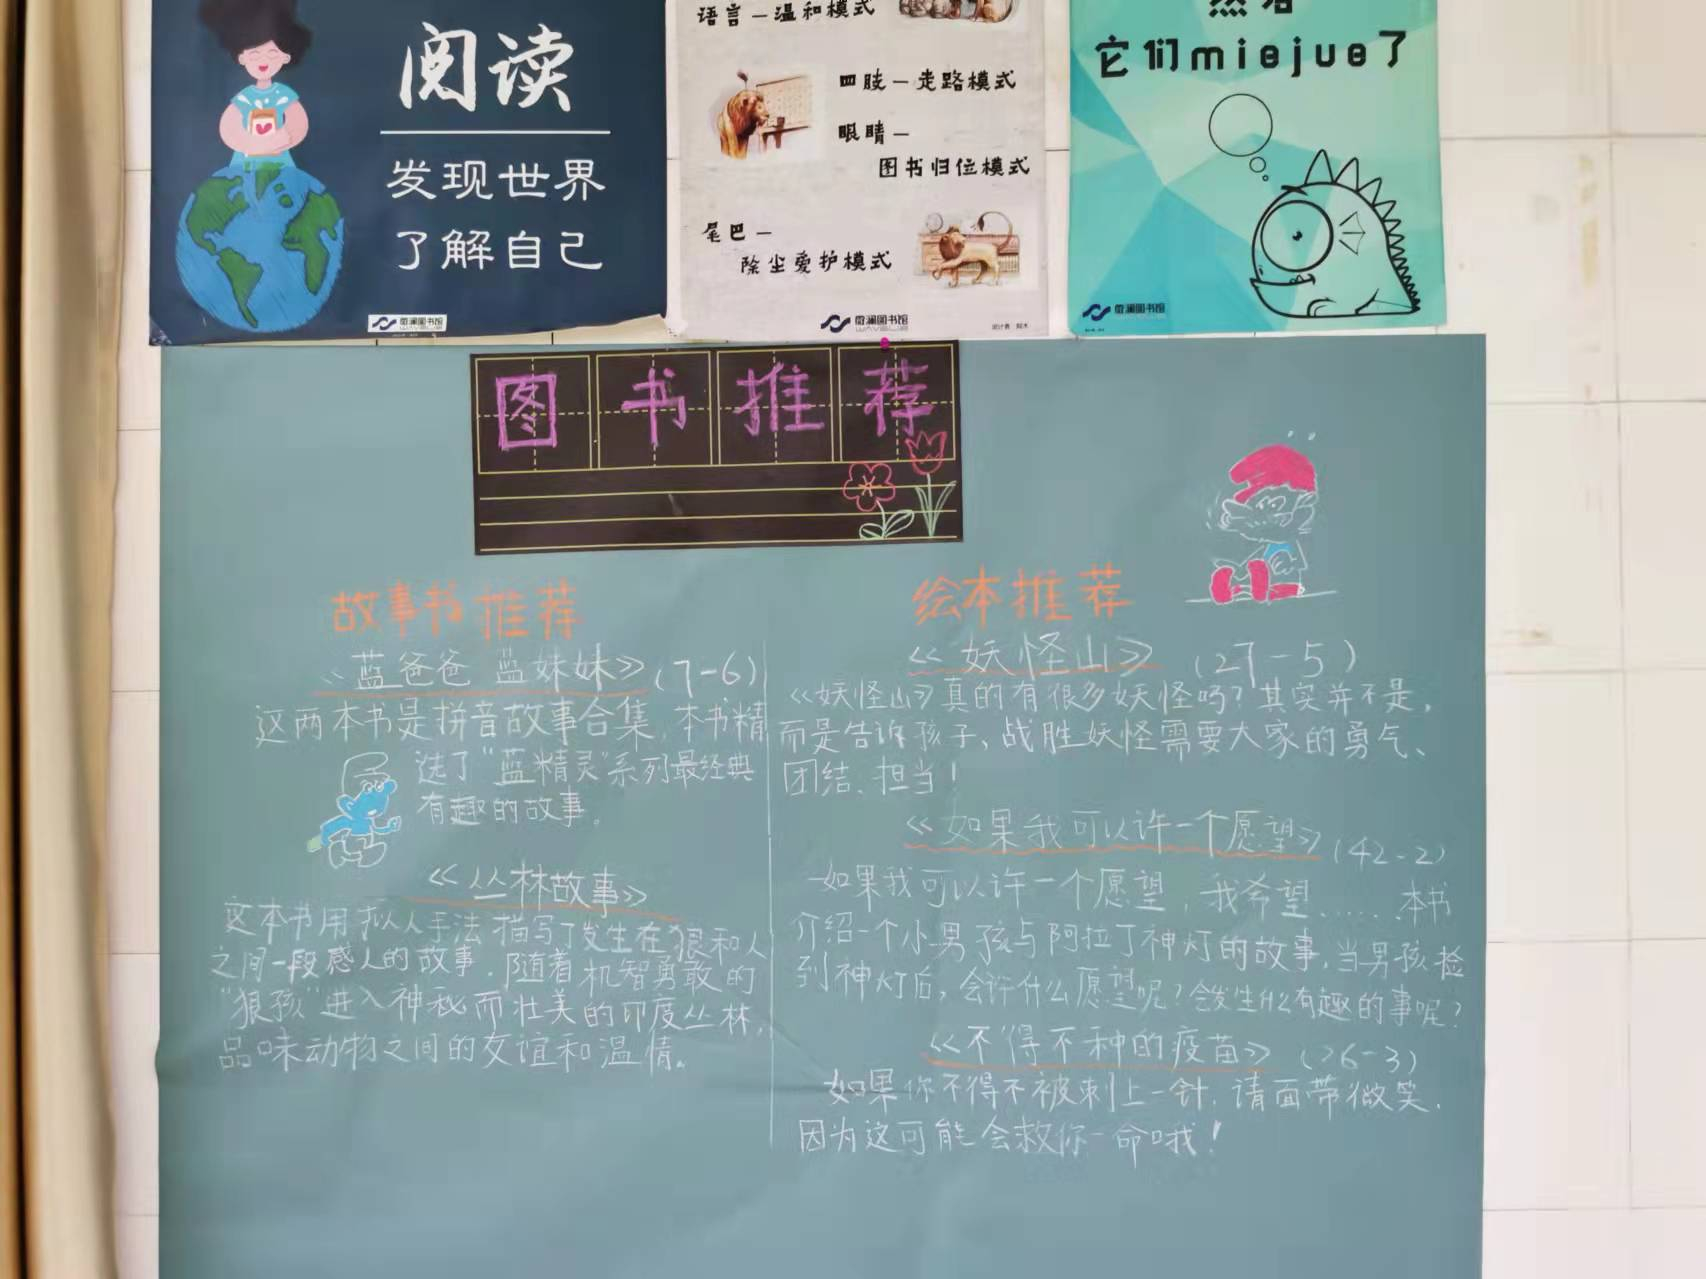 阅读
发现世界
了解自己
微澜图书馆
语言－温和模式
四肢－走路模式
眼睛－
图书归位模式
尾巴－
除尘爱护模式
微澜图书馆
它们miejue了
微澜图书馆
图书推荐
故事书推荐
《蓝爸爸 蓝妹妹》(7-6)
这两本书是拼音故事合集,本书精
选了“蓝精灵”系列最经典
有趣的故事.
《丛林故事》
这本书用拟人手法描写了发生在狼和人
之间一段感人的故事.随着机智勇敢的
“狼孩”进入神秘而壮美的印度丛林,
品味动物之间的友谊和温情。
绘本推荐
《妖怪山》(27-5)
《妖怪山》真的有很多妖怪吗?其实并不是,
而是告诉孩子、战胜妖怪需要大家的勇气、
团结、担当!
《如果我可以许一个愿望》(42-2)
如果我可以许一个愿望,我希望......本书
介绍一个小男孩与阿拉丁神灯的故事,当男孩捡
到神灯后,会许什么愿望呢?会发生什么有趣的事呢?
《不得不种的疫苗》(26-3)
如果你不得不被刺上一针.请面带微笑.
因为这可能会救你一命哦!